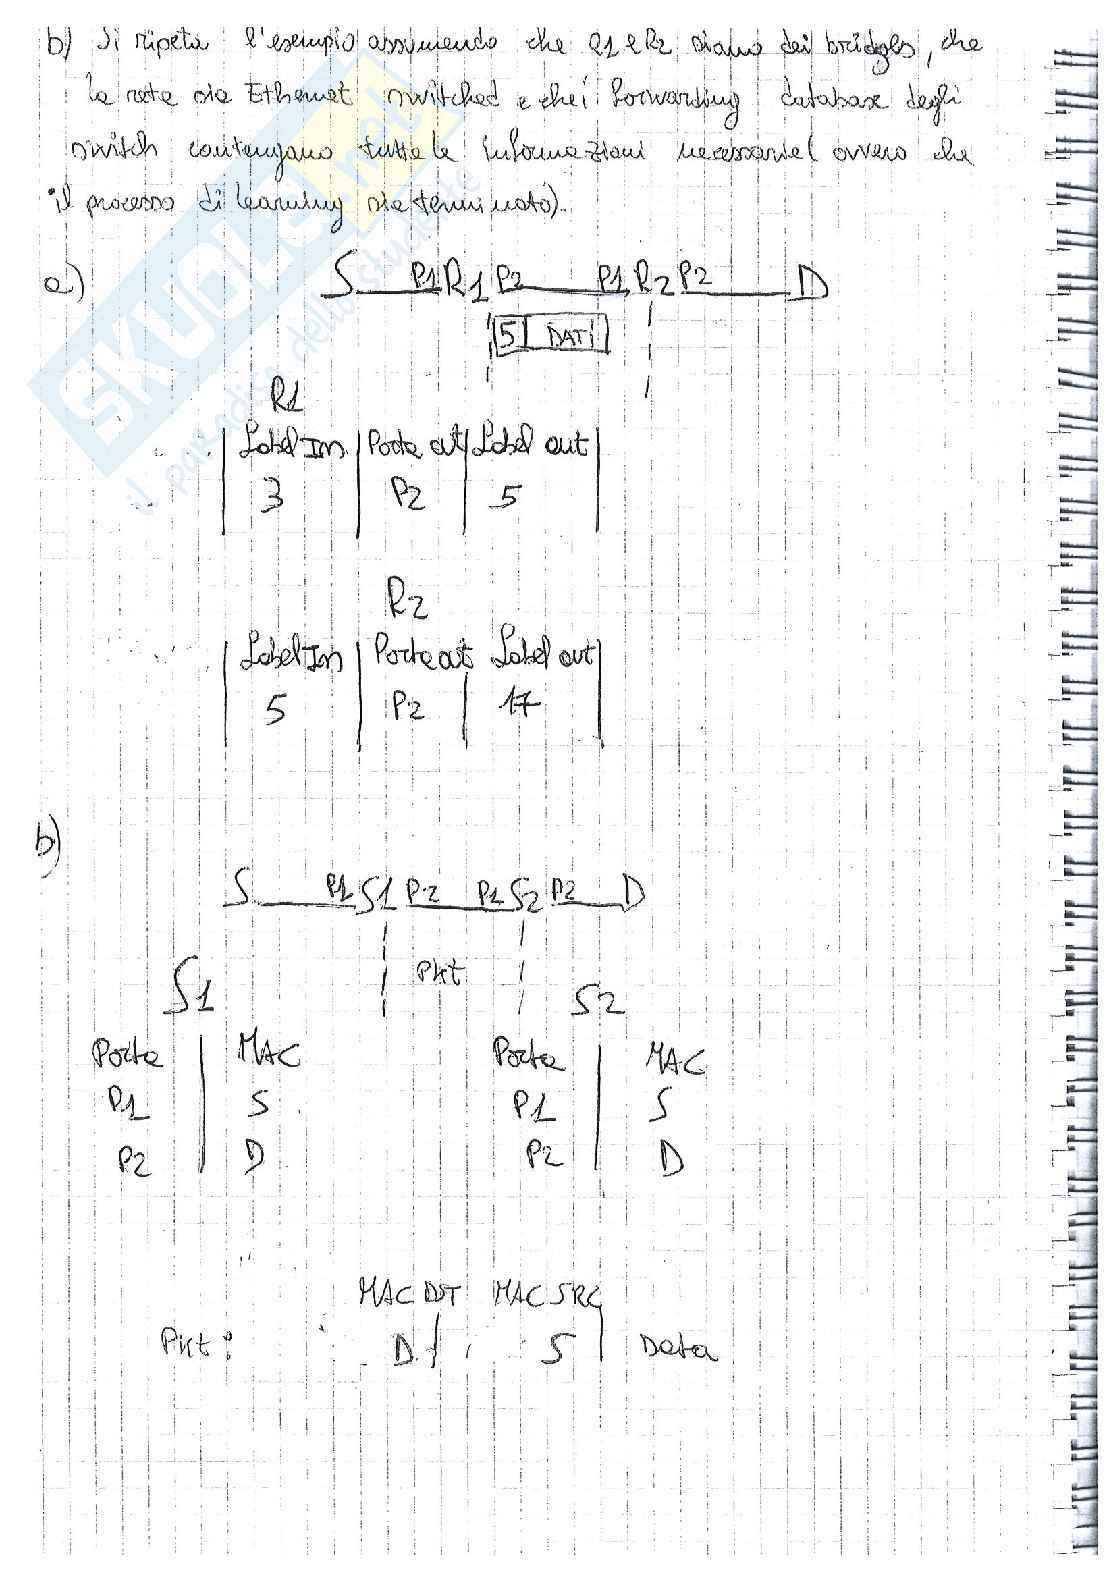 b) Si ripeta l'esempio assumendo che R1 e R2 siano dei bridges, che
la rete sia Ethernet switched e che i forwarding database degli
switch contengano tutte le informazioni necessarie (ovvero che
il processo di learning sia terminato).
a) S P1 R1 P2 P1 R2 P2 D
5 DATI
R1
Label In Porta out Label out
3 P2 5
R2
Label In Porta out Label out
5 P2 17
b)
S P1 S1 P2 P1 S2 P2 D
Pkt
S1 S2
Porta MAC Porta MAC
P1 S P1 S
P2 D P2 D
MAC DST MAC SRC
Pkt: D S Data
SKUOLA.net
il paradiso dello studente